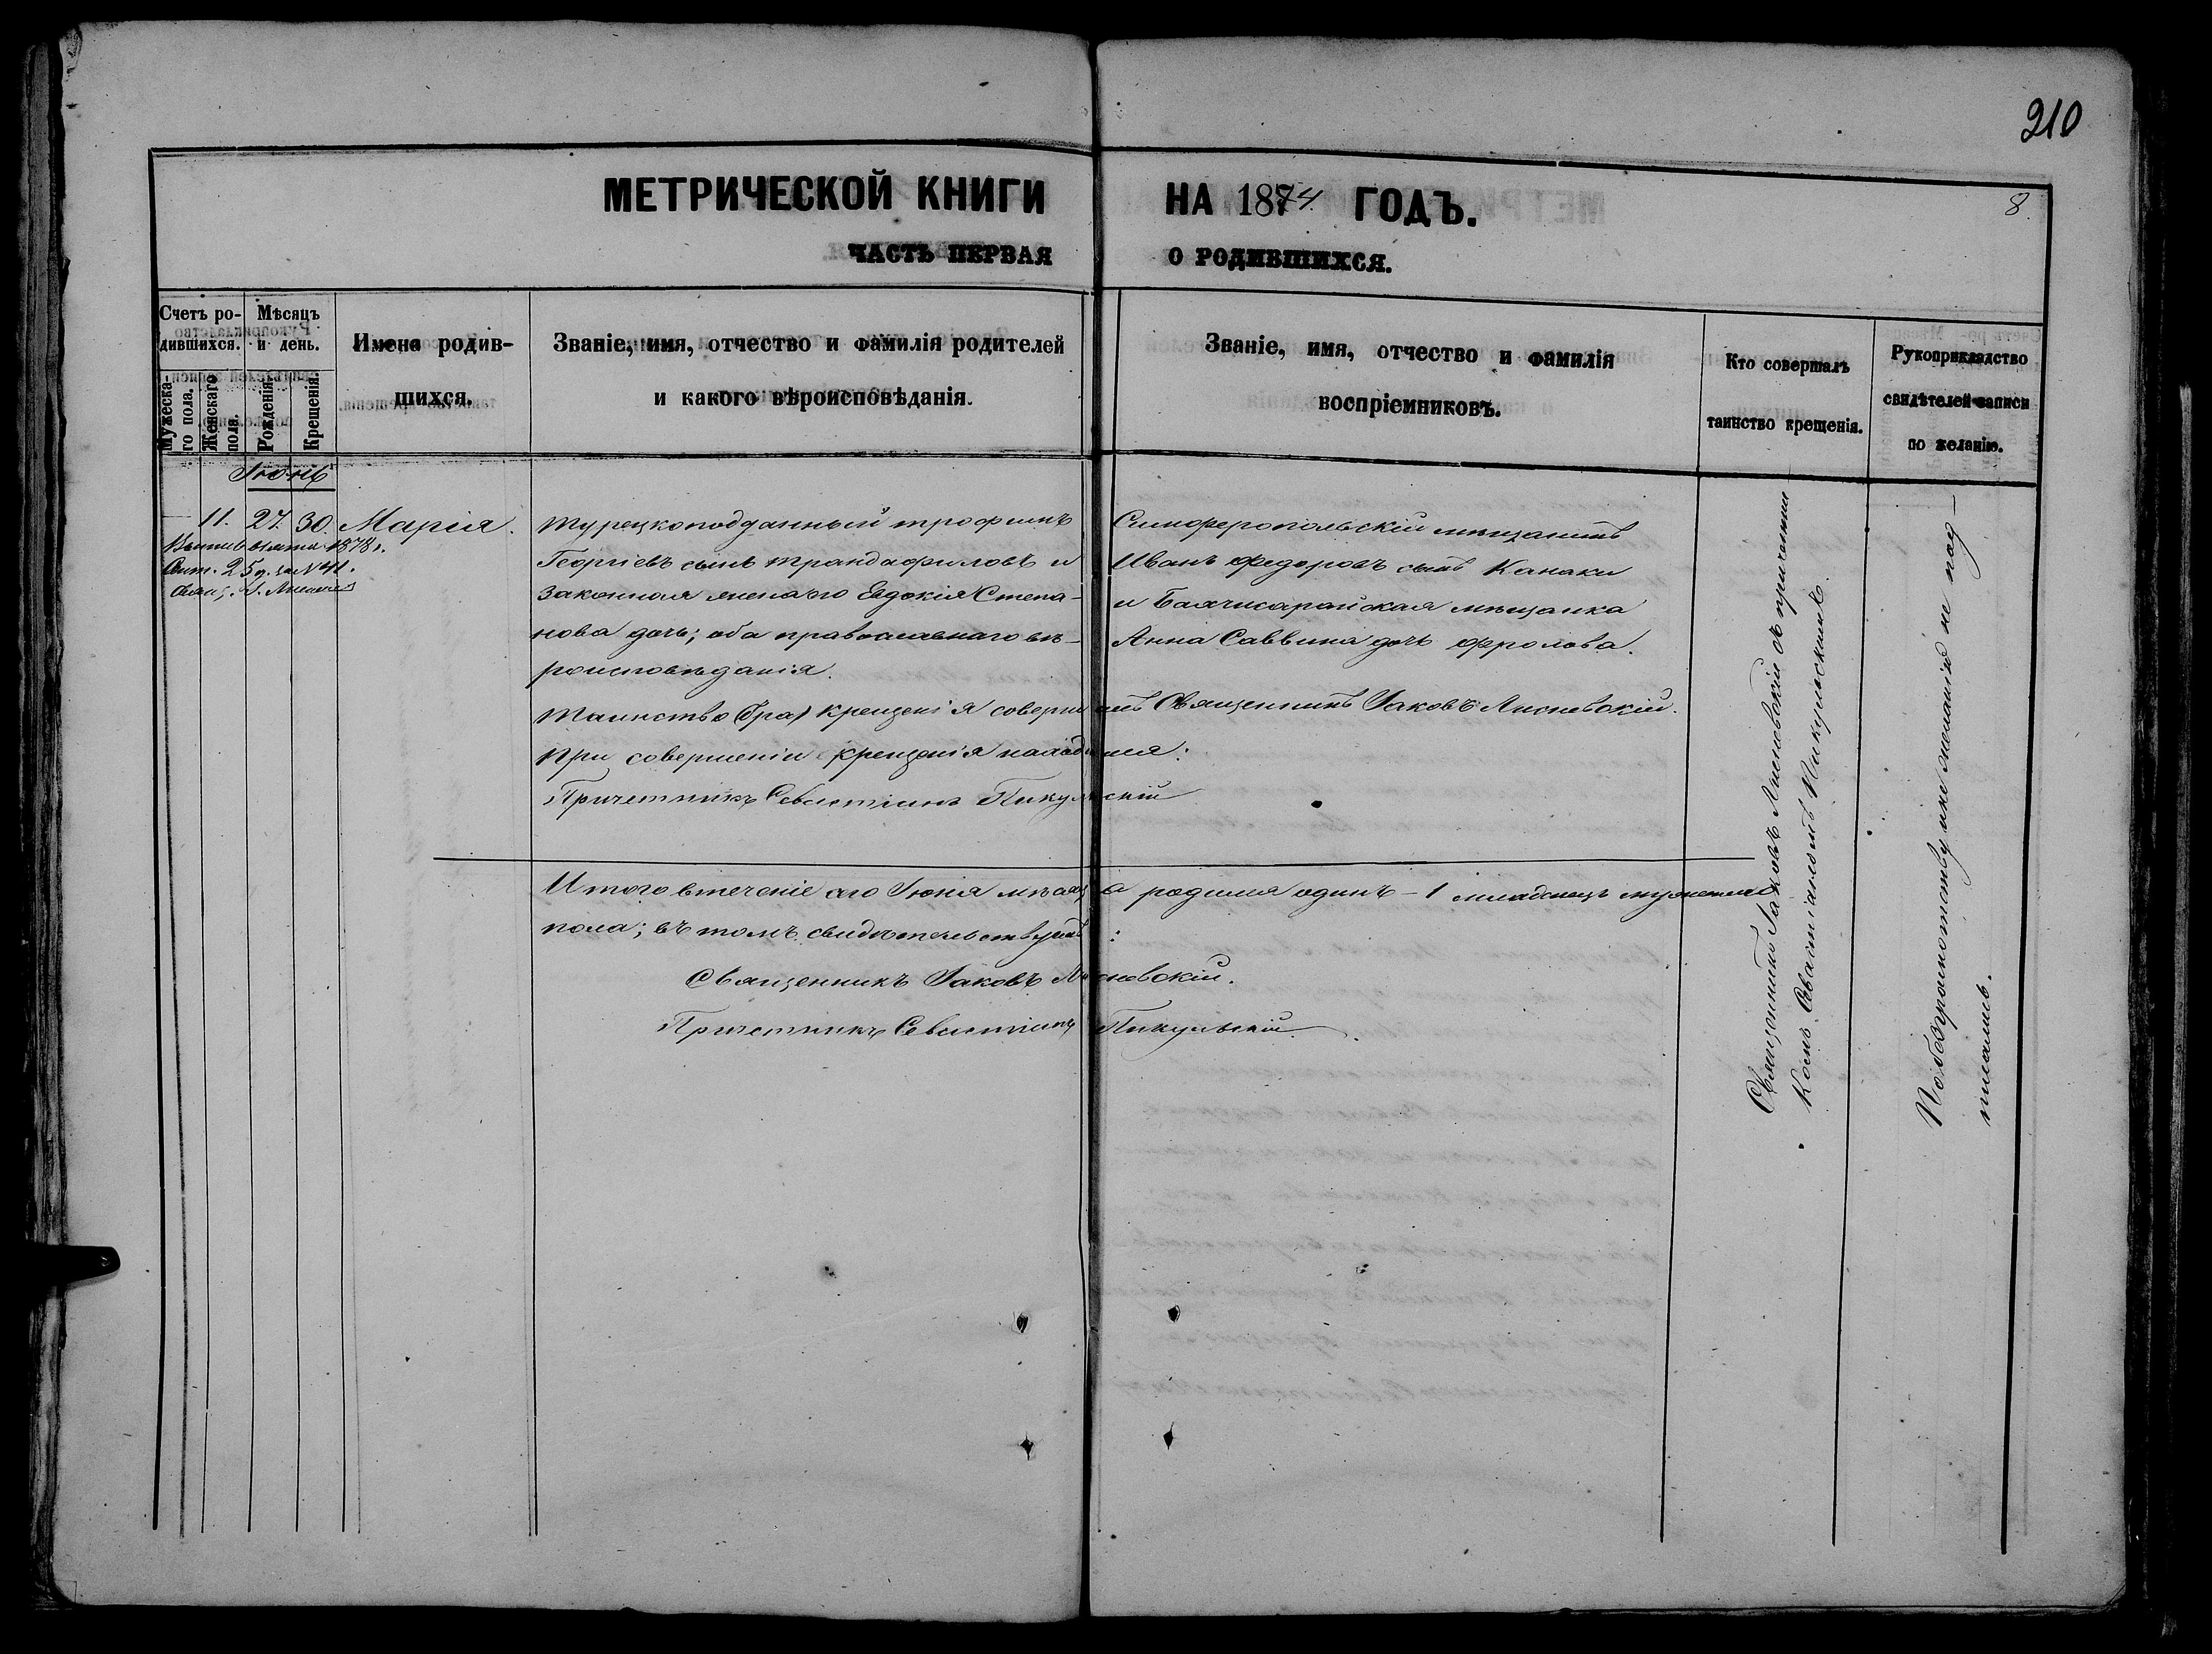 210
МЕТРИЧЕСКОЙ КНИГИ НА 1874 ГОДЪ.
8.
ЧАСТЬ ПЕРВАЯ О РОДИВШИХСЯ.
Счетъ родившихся.
Мужескаго пола.
Женскаго пола.
Мѣсяцъ и день.
Рожденія.
Крещенія.
Имена родив-
шихся.
Званіе, имя, отчество и фамилія родителей
и какого вѣроисповѣданія.
Званіе, имя, отчество и фамилія
воспріемниковъ.
Кто совершалъ
таинство крещенія.
Рукоприкладство
свидѣтелей записи
по желанію.
Іюнь
11. 27. 30. Марія.
1878 г.
25 д. за № 41.
Турецкоподданный Трофимъ
Георгіевъ сынъ Трандафиловъ и
законная жена его Евдокія Степа-
нова дочь; оба православнаго вѣ-
роисповѣданія.
Симферопольскій мѣщанинъ
Иванъ Федоровъ сынъ Канаки
и Бахчисарайская мѣщанка
Анна Саввина дочь Фролова.
Таинство Св. крещенія совершалъ Священникъ Іаковъ Лисневскій.
При совершеніи крещенія находился:
Причетникъ Севастіанъ Пикульскій
Итого втеченіе сего Іюня мѣсяца родился одинъ – 1 младенецъ
пола; въ томъ свидѣтельствуютъ:
Священникъ Іаковъ Лисневскій.
Причетникъ Севастіанъ Пикульскій.
Священникъ Іаковъ Лисневскій съ причетни-
комъ Севастіаномъ Пикульскимъ.
По безграмотству и не желанію не под-
писались.